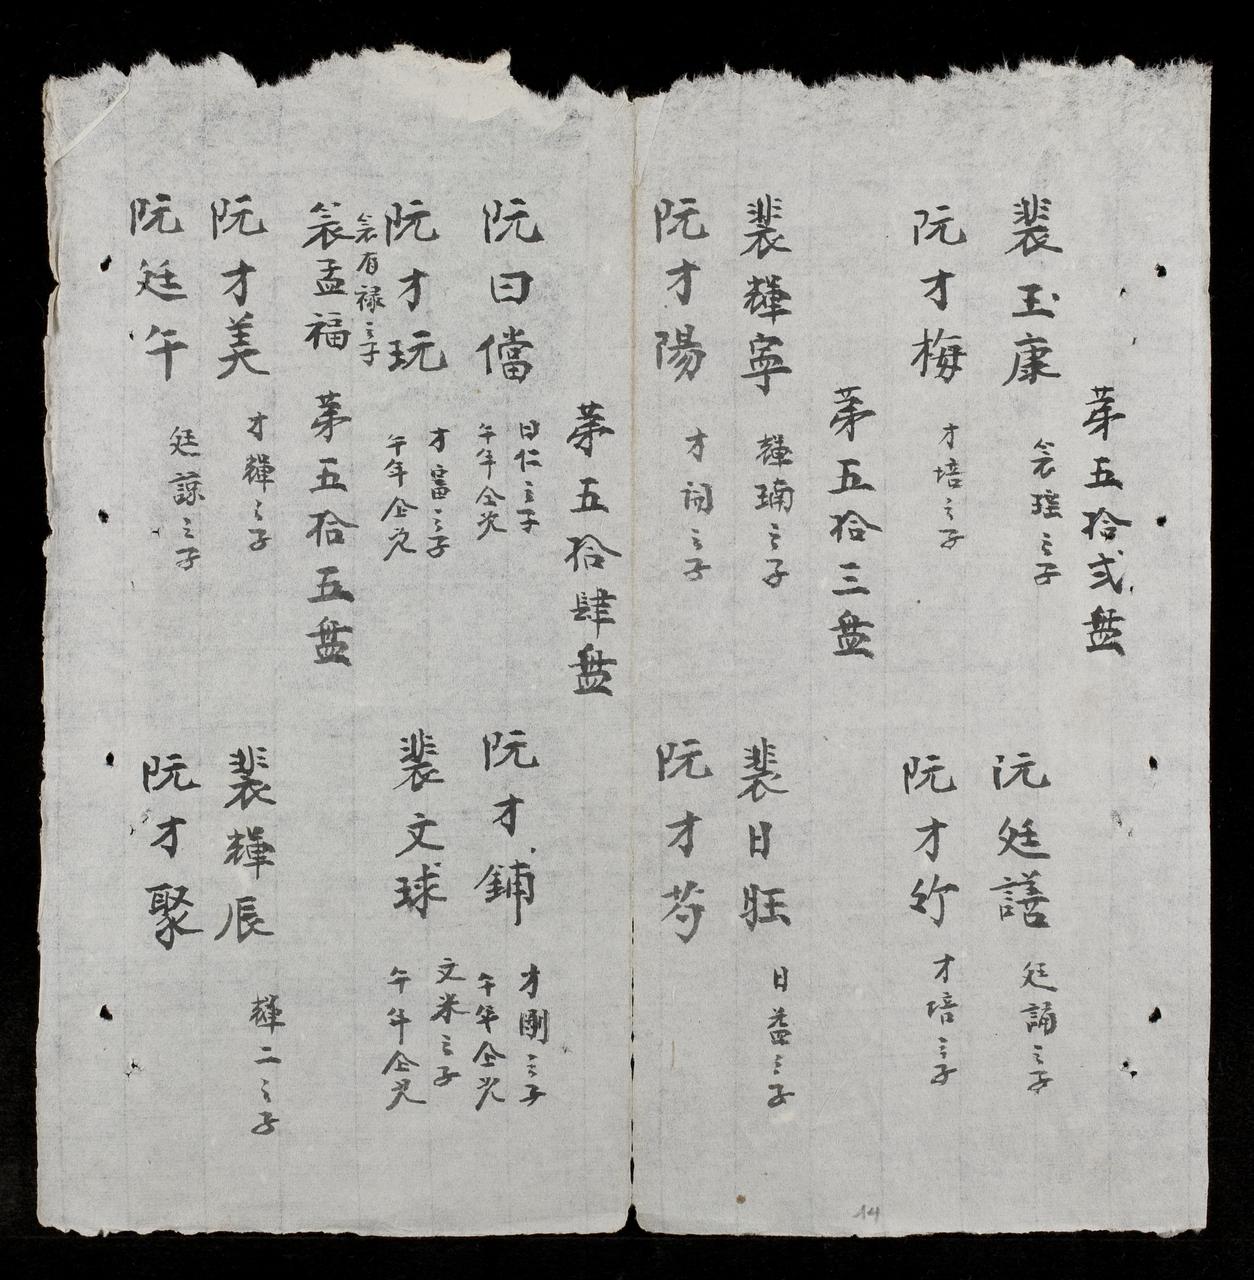 第五拾弍盘
裴玉康 衾瑶之子
阮廷譱 廷誦之子
阮才梅 才培之子
阮才竹 才培之子
第五拾三盘
裴輝寧 輝瑀之子
裴日旺 日益之子
阮才陽 才詞之子
阮才芩
第五拾肆盘
阮曰儅 日仁之子 午年仝次
阮才鋪 才剛之子 午年仝次
阮才玩 才富之子 午年仝次
裴文球 文米之子 午年仝次
衾孟福 衾有禄之子
第五拾五盘
阮才美 才輝之子
裴輝辰 輝二之子
阮廷午 廷諒之子
阮才聚
14